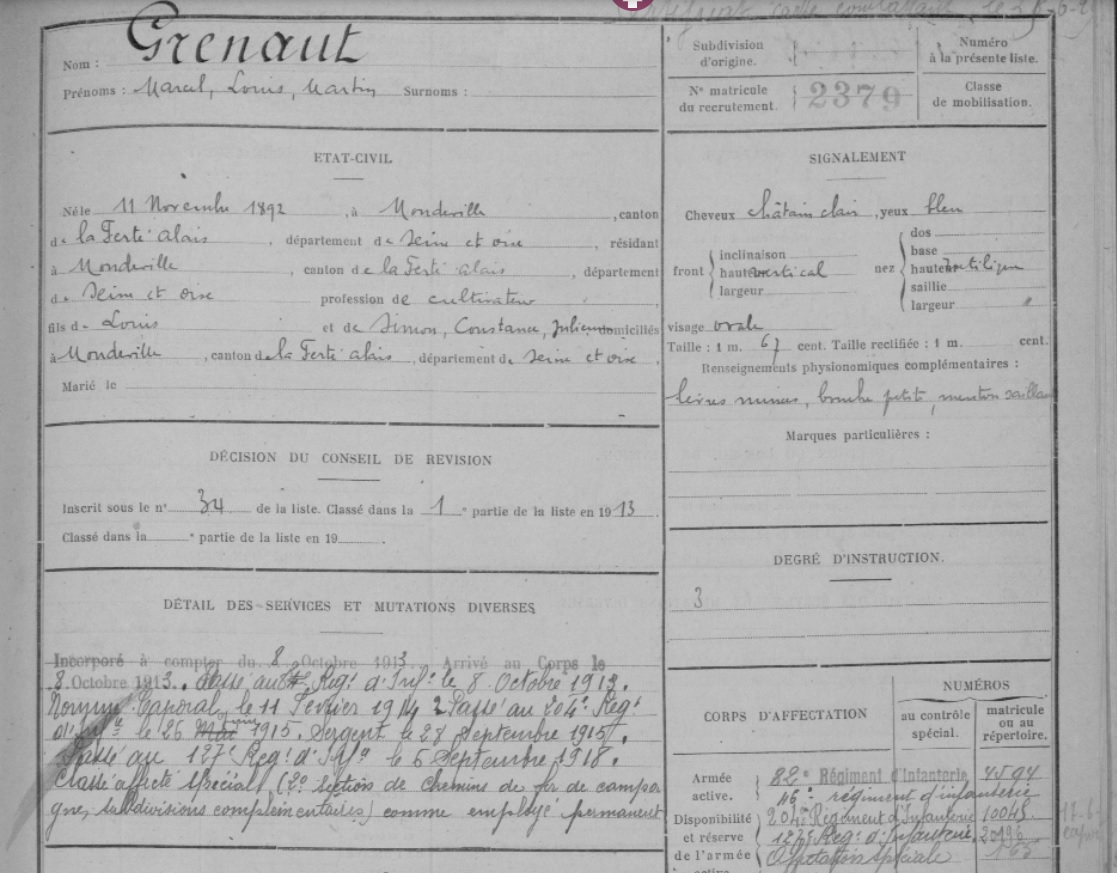 Certificat carte combattant, le
Nom : Grenaut
Prénoms : Marcel, Louis, Martin Surnoms :
Subdivision
d'origine.
Numéro
à la présente liste.
N° matricule
du recrutement. 2379
Classe
de mobilisation.
ETAT-CIVIL
Né le 11 Novembre 1892, à Mondeville, canton
de la Ferté alais, département de Seine et oise, résidant
à Mondeville, canton de la Ferté alais, département
de Seine et oise profession de cultivateur,
fils de Louis et de Simon, Constance, domiciliés
à Mondeville, canton de la Ferté alais, département de Seine et oise.
Marié le
DÉCISION DU CONSEIL DE REVISION
Inscrit sous le n° 34 de la liste. Classé dans la 1e partie de la liste en 1913.
Classé dans la e partie de la liste en 19 .
DÉTAIL DES SERVICES ET MUTATIONS DIVERSES
Incorporé à compter du 8 Octobre 1913. Arrivé au Corps le
8 Octobre 1913. Passé au Régt d'Infie le 8 Octobre 1913.
Nommé Caporal, le 11 Février 1914 Passé au 204e Regt
d'Infie le 26 1915. Sergent le 28 Septembre 1915.
Passé au 127e Regt d'Infie le 6 Septembre 1918.
Classé affecté spécial (2e section de chemins de fer de campa
gne, subdivisions complémentaires) comme employé permanent
SIGNALEMENT
Cheveux châtain clair, yeux bleu
front
inclinaison
hauteur vertical
largeur
nez
dos
base
hauteur rectiligne
saillie
largeur
visage ovale
Taille : 1 m. 67 cent. Taille rectifiée : 1 m. cent.
Renseignements physionomiques complémentaires :
lèvres minces, bouche petite, menton saillant
Marques particulières :
DEGRÉ D'INSTRUCTION.
3
CORPS D'AFFECTATION
NUMÉROS
au contrôle
spécial.
matricule
ou au
répertoire.
Armée
active.
82e Régiment d'Infanterie 4594
régiment d'infanterie
Disponibilité
et réserve
de l'armée
active
204e Régiment d'Infanterie 10045
127e Regt d'Infanterie 20196
Affectation spéciale 165